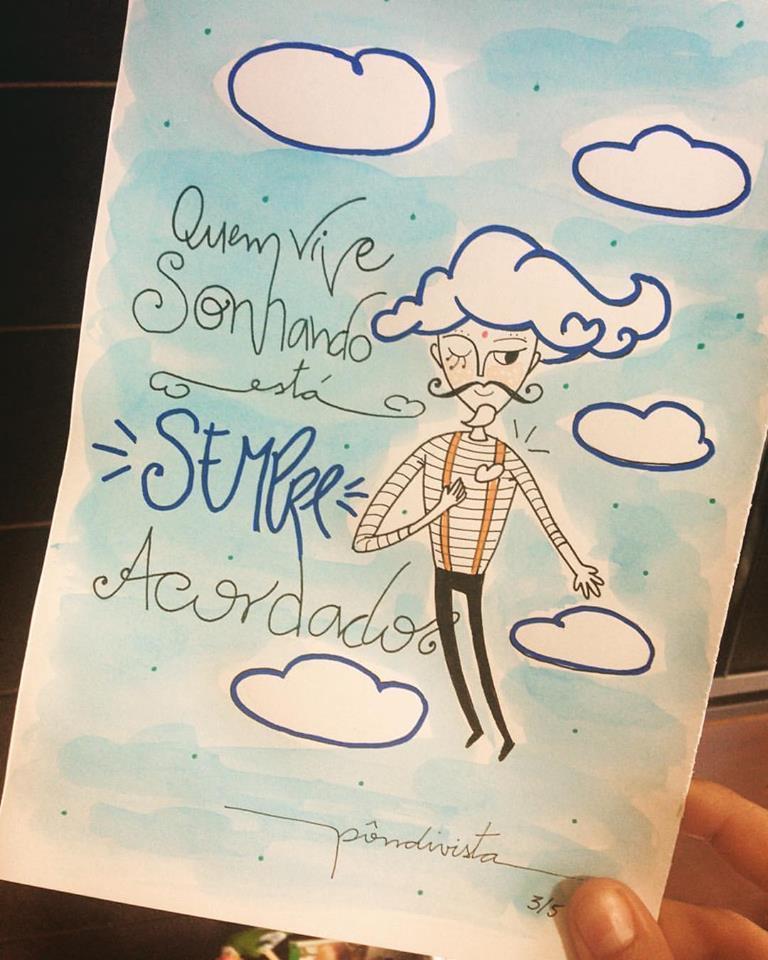 Quem vive
Sonhando
está
SEMPRE
Acordado
pôndivista
3/5